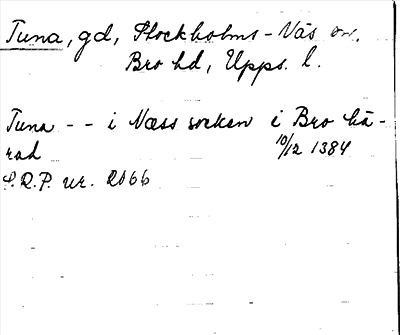 Tuna, gd, Stockholms-Näs sn.
Bro hd, Upps. l.
Tuna - - i Næss socken i Bro hä-
rad 10/12 1384
S.R.P. nr. 2066